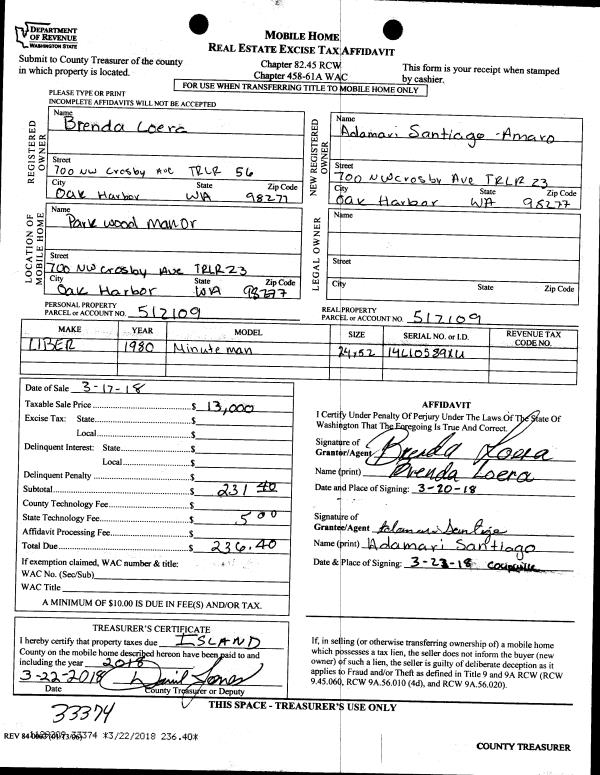 DEPARTMENT
OF REVENUE
WASHINGTON STATE
MOBILE HOME
REAL ESTATE EXCISE TAX AFFIDAVIT
Submit to County Treasurer of the county
in which property is located.
Chapter 82.45 RCW
Chapter 458-61A WAC
This form is your receipt when stamped
by cashier.
FOR USE WHEN TRANSFERRING TITLE TO MOBILE HOME ONLY
PLEASE TYPE OR PRINT
INCOMPLETE AFFIDAVITS WILL NOT BE ACCEPTED
REGISTERED
OWNER
Name
Brenda Loera
Street
700 NW Crosby Ave TRLR 56
City State Zip Code
Oak Harbor WA 98277
NEW REGISTERED
OWNER
Name
Adamari Santiago-Amaro
Street
700 NW Crosby Ave TRLR 23
City State Zip Code
Oak Harbor WA 98277
LOCATION OF
MOBILE HOME
Name
Parkwood Manor
Street
700 NW Crosby Ave TRLR 23
City State Zip Code
Oak Harbor WA 98277
LEGAL OWNER
Name
Street
City State Zip Code
PERSONAL PROPERTY
PARCEL or ACCOUNT NO. 512109
REAL PROPERTY
PARCEL or ACCOUNT NO. 512109
MAKE YEAR MODEL SIZE SERIAL NO. or I.D. REVENUE TAX
CODE NO.
LIBER 1980 Minuteman 24x52 14L10589XU
Date of Sale 3-17-18
Taxable Sale Price $ 13,000
Excise Tax: State $
Local $
Delinquent Interest: State $
Local $
Delinquent Penalty $
Subtotal $ 231 40
County Technology Fee $
State Technology Fee $ 5 00
Affidavit Processing Fee $
Total Due $ 236.40
If exemption claimed, WAC number & title:
WAC No. (Sec/Sub)
WAC Title
A MINIMUM OF $10.00 IS DUE IN FEE(S) AND/OR TAX.
AFFIDAVIT
I Certify Under Penalty Of Perjury Under The Laws Of The State Of
Washington That The Foregoing Is True And Correct.
Signature of
Grantor/Agent Brenda Loera
Name (print) Brenda Loera
Date and Place of Signing: 3-20-18
Signature of
Grantee/Agent Adamari Santiago
Name (print) Adamari Santiago
Date & Place of Signing: 3-23-18 Coupeville
TREASURER'S CERTIFICATE
I hereby certify that property taxes due ISLAND
County on the mobile home described hereon have been paid to and
including the year 2018
3-22-2018
Date County Treasurer or Deputy
If, in selling (or otherwise transferring ownership of) a mobile home
which possesses a tax lien, the seller does not inform the buyer (new
owner) of such a lien, the seller is guilty of deliberate deception as it
applies to Fraud and/or Theft as defined in Title 9 and 9A RCW (RCW
9.45.060, RCW 9A.56.010 (4d), and RCW 9A.56.020).
33374
THIS SPACE - TREASURER'S USE ONLY
REV 84 33374 *3/22/2018 236.40*
COUNTY TREASURER